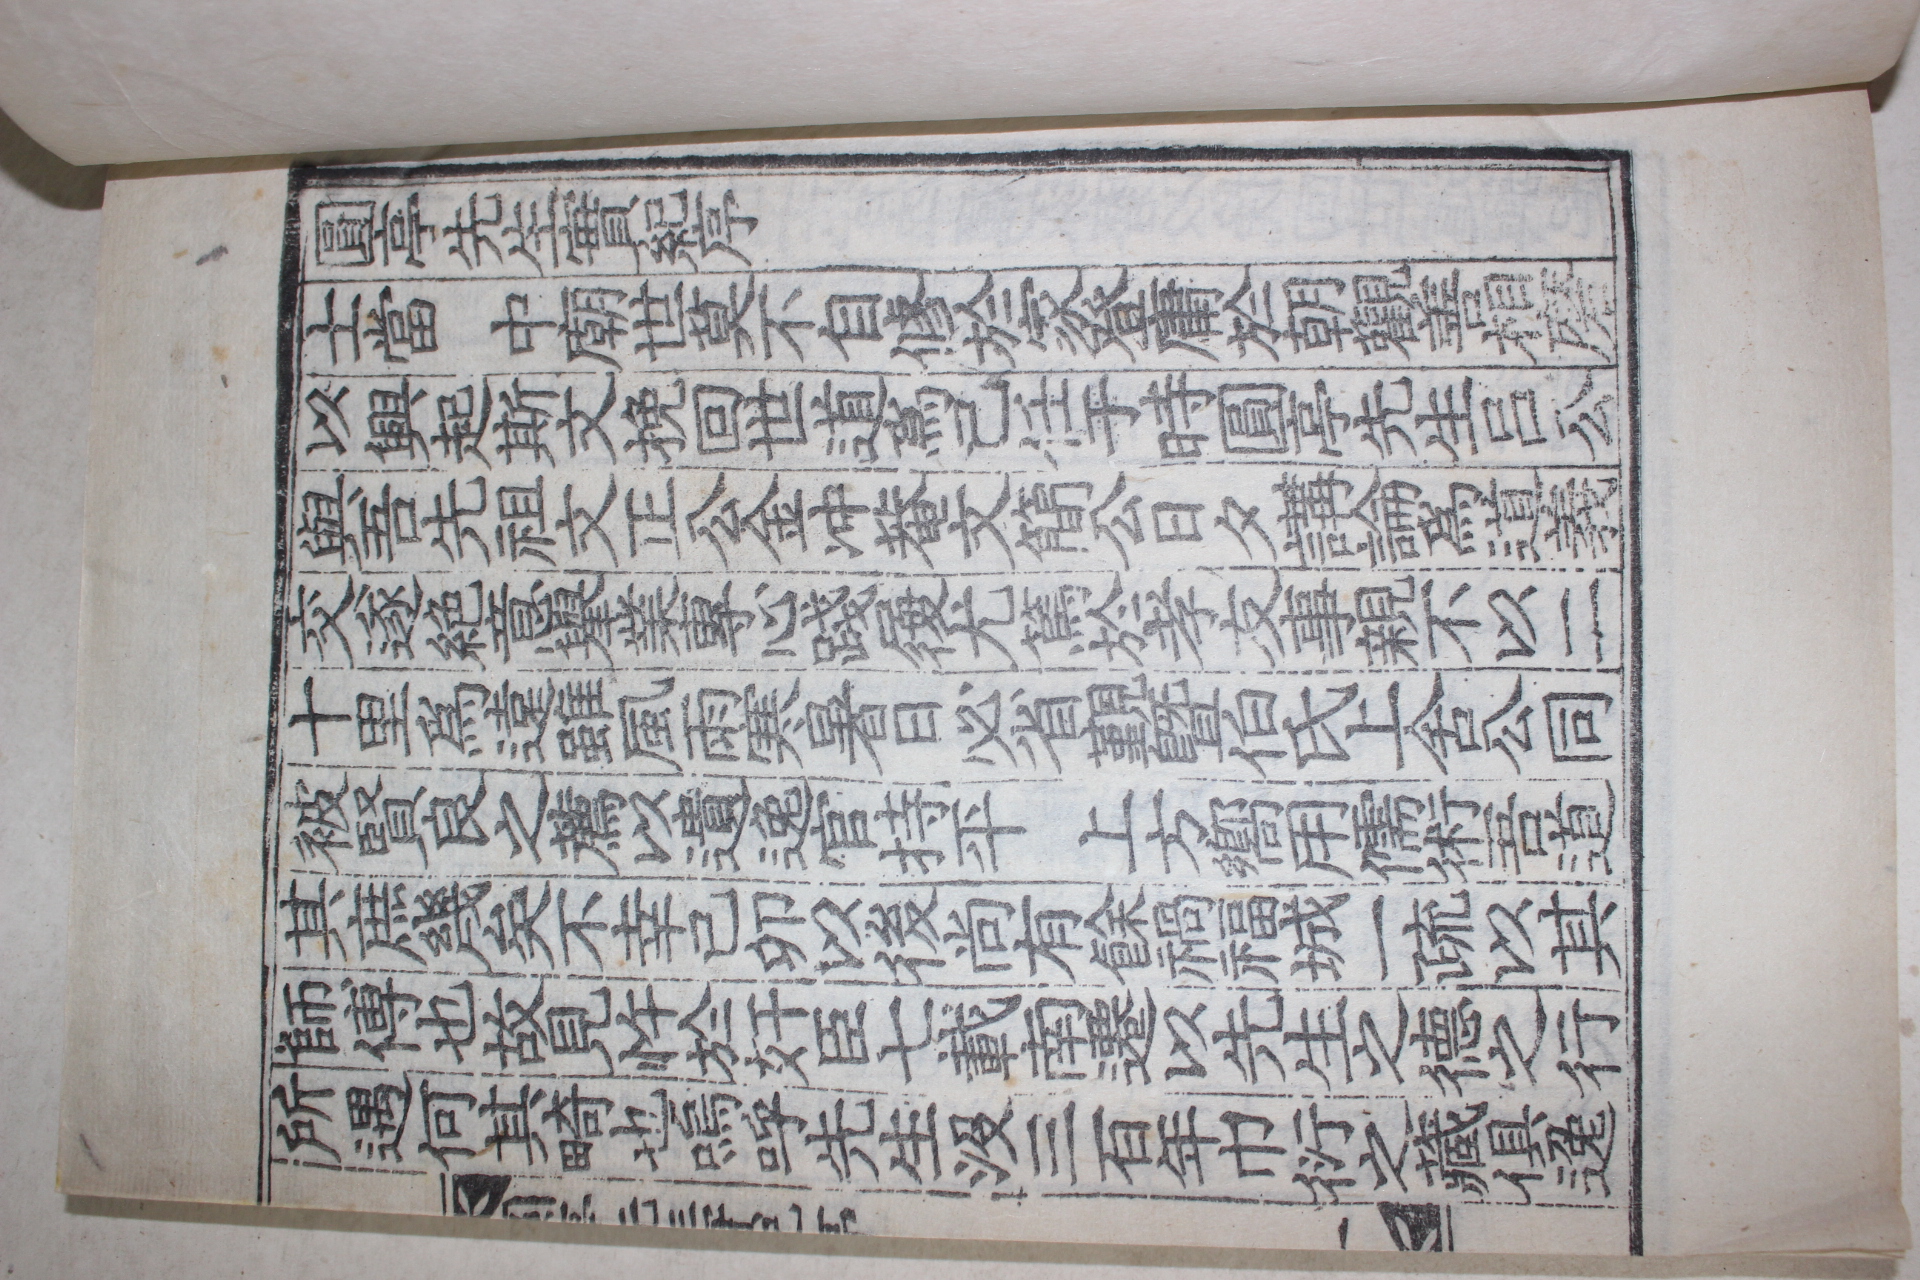 圓亭先生實紀序
士當 中廟世莫不自修於家登庸於朝觀善相發
以興起斯文挽回世道爲己任于時圓亭先生呂公
與吾先祖文正公金冲菴文簡公日夕講論爲道義
交遂絶意擧業專心踐履尤篤於孝友事親不以二
十里爲遠雖風雨寒暑日必省覲曁伯氏上舍公同
被賢良之薦以遺逸官持平 上方嚮用儒術吾道
其庶幾矣不幸己卯以後尚有餘禍福城一疏以其
師傅也故見忤於奸臣七載南遷以先生之德之行
所遇何其畸也嗚呼先生沒三百年巾衍之藏俱逸